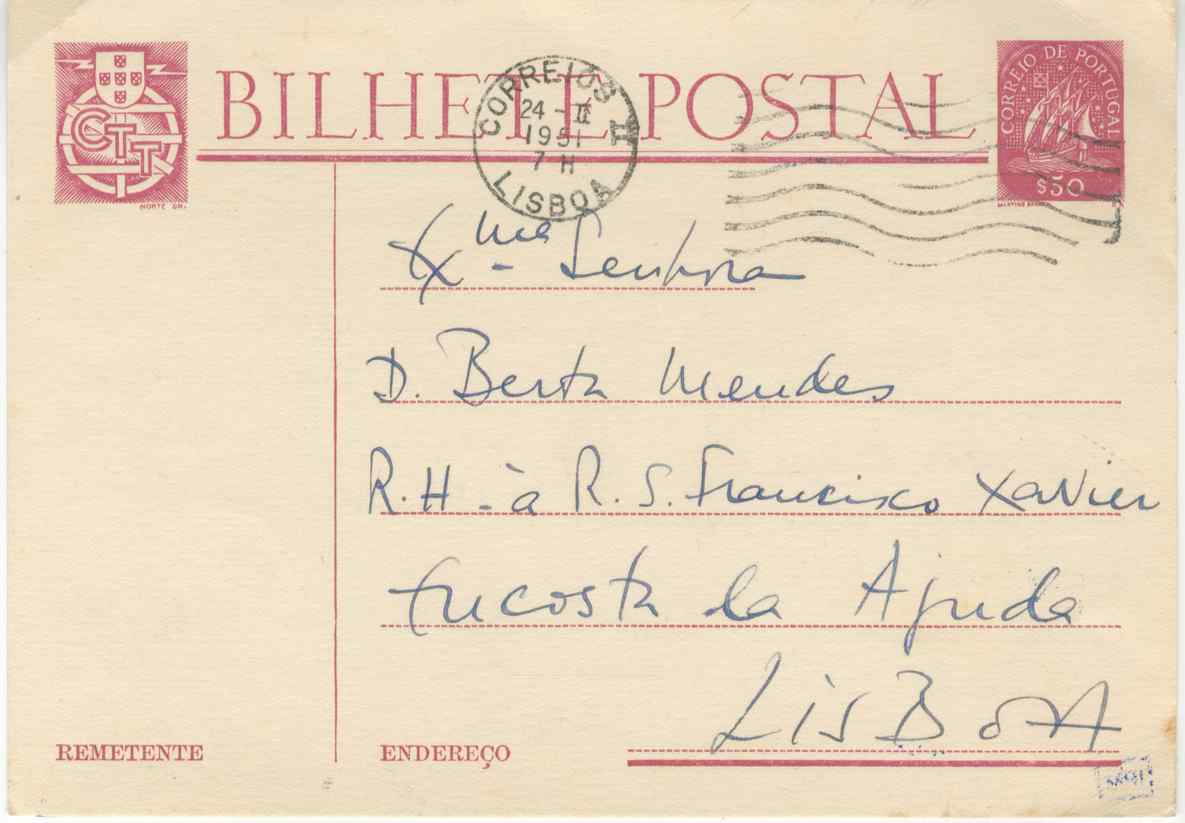 BILHETE POSTAL
CTT
NORTE GR.
CORREIOS II
24 - II
1951
7 H
LISBOA
CORREIO DE PORTUGAL
$50
Exma Senhora
D. Berta Mendes
R. H - à R. S. Francisco Xavier
Encosta da Ajuda
LISBOA
REMETENTE
ENDEREÇO